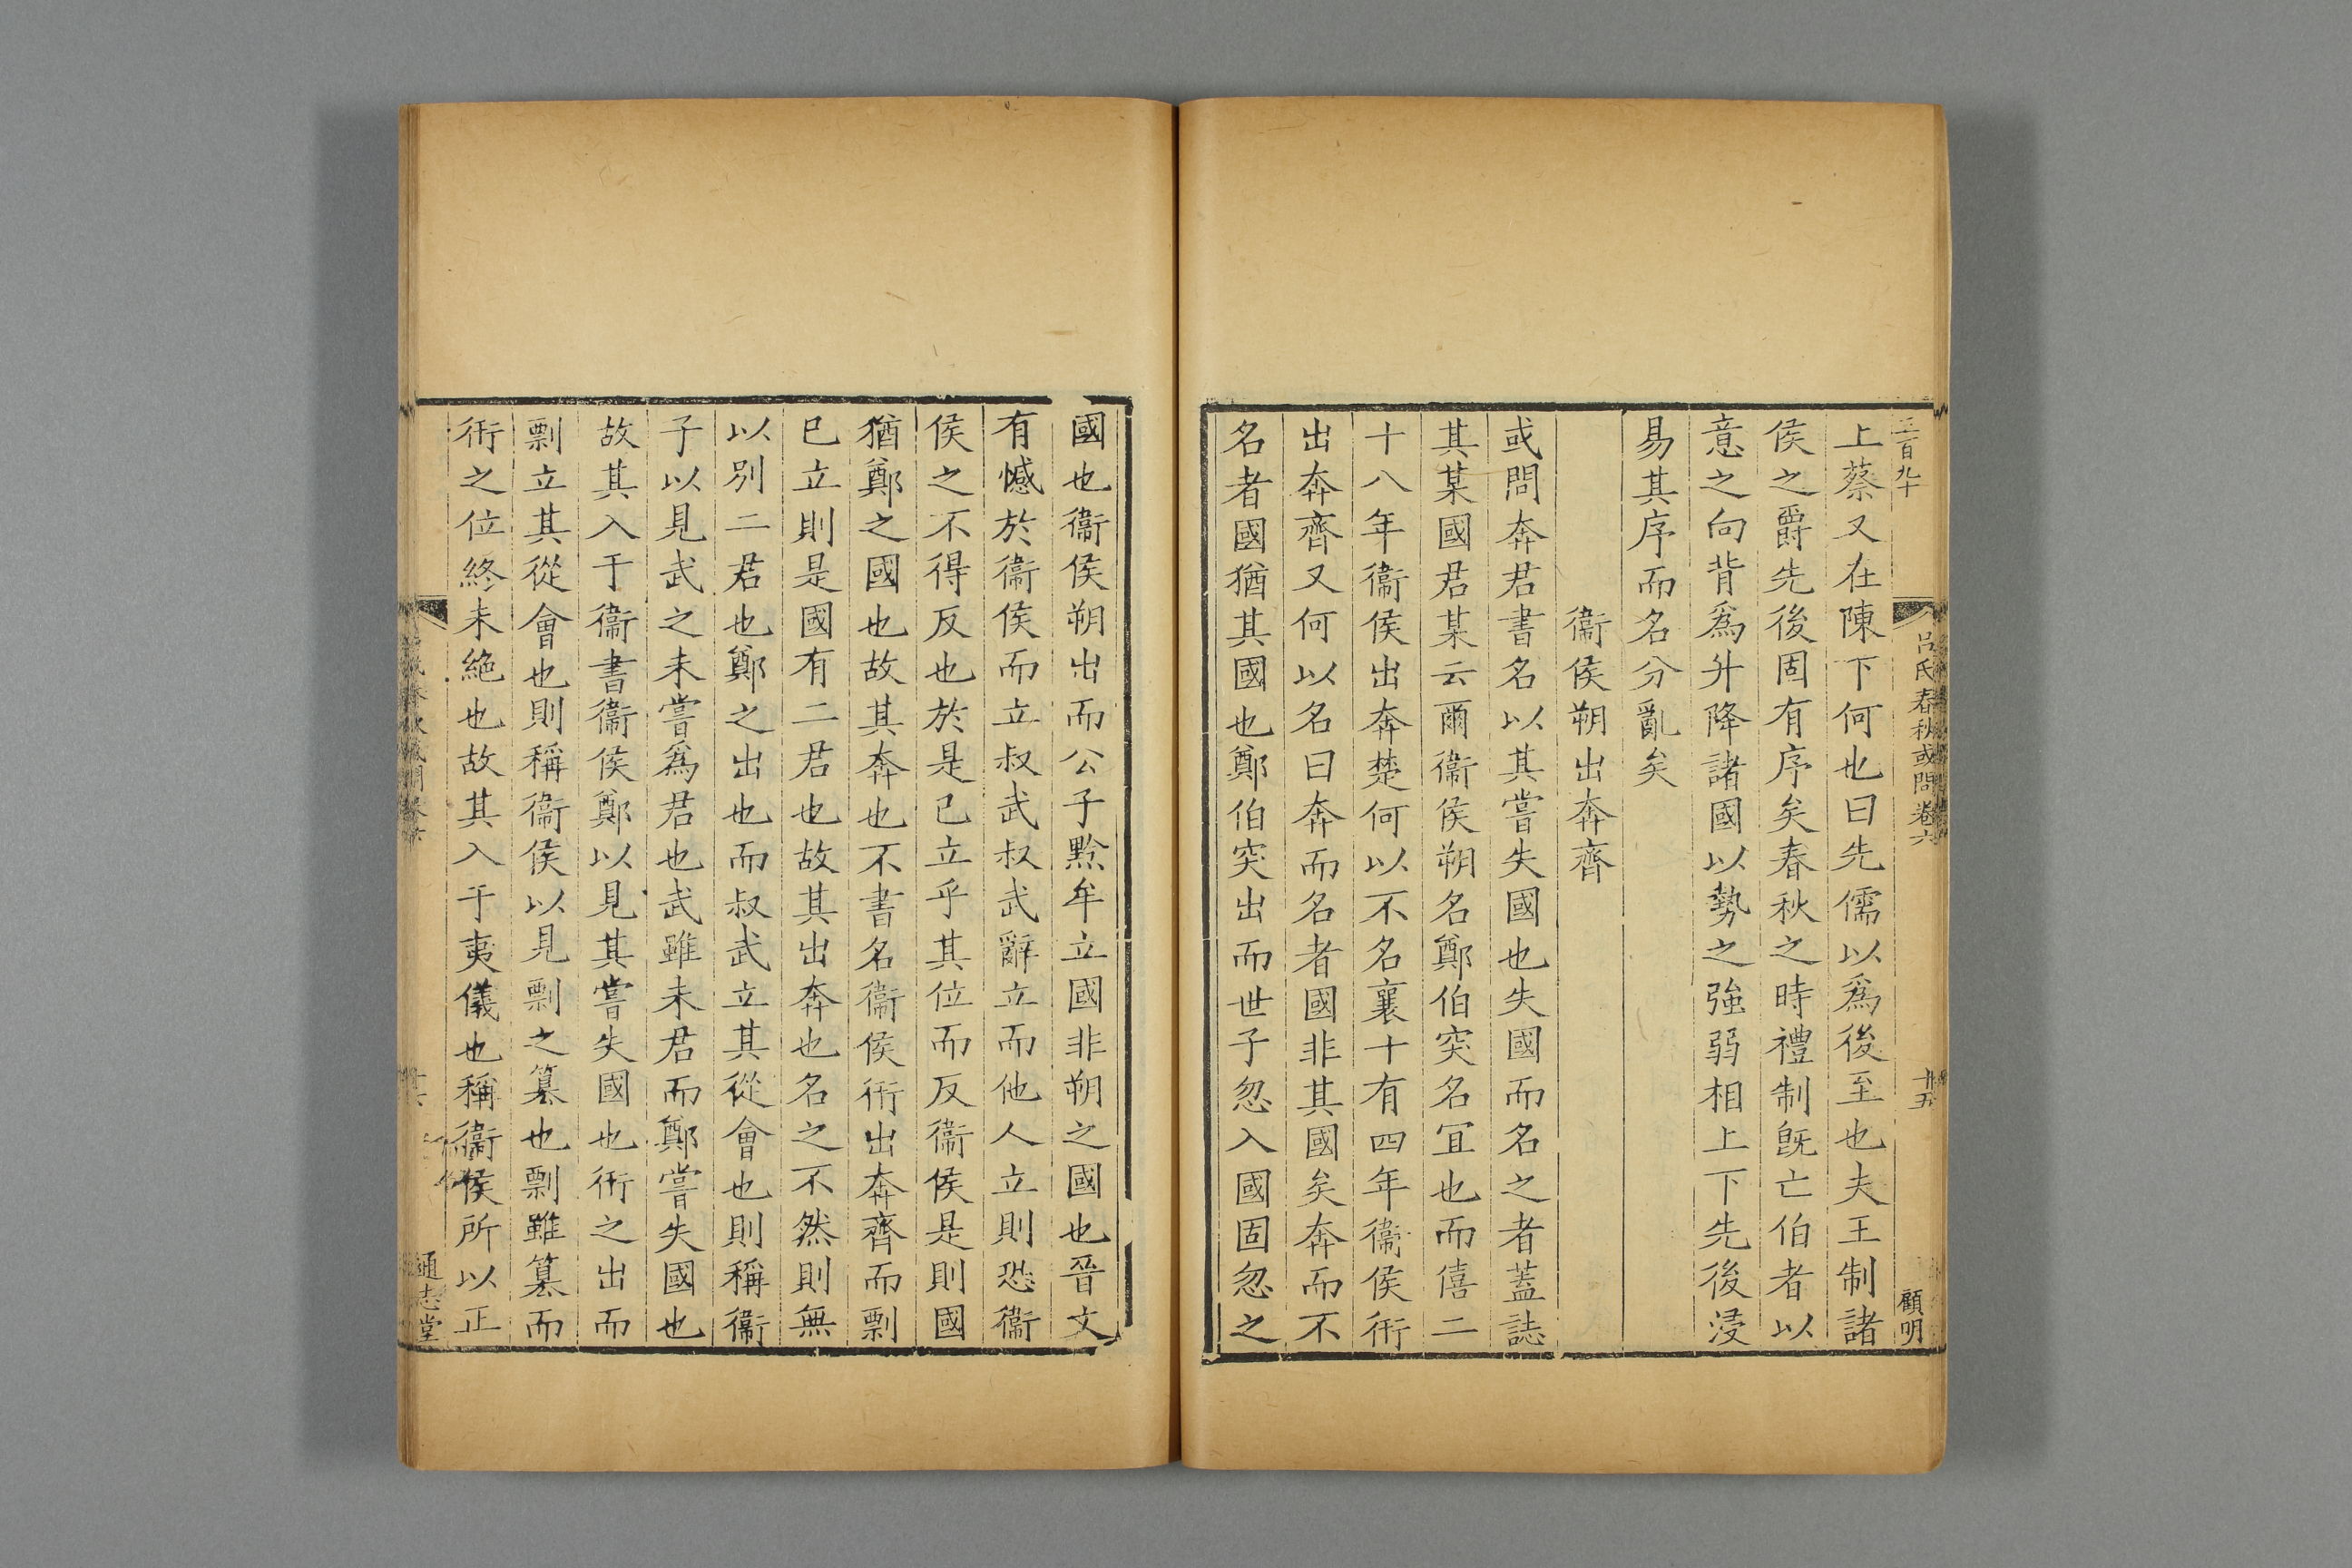 呂氏春秋或問卷六
廿五
顧明
上蔡又在陳下何也曰先儒以爲後至也夫王制諸
侯之爵先後固有序矣春秋之時禮制旣亡伯者以
意之向背爲升降諸國以勢之強弱相上下先後浸
易其序而名分亂矣
衞侯朔出奔齊
或問奔君書名以其嘗失國也失國而名之者蓋誌
其某國君某云爾衞侯朔名鄭伯突名冝也而僖二
十八年衞侯出奔楚何以不名襄十有四年衞侯衎
出奔齊又何以名曰奔而名者國非其國矣奔而不
名者國猶其國也鄭伯突出而世子忽入國固忽之
國也衞侯朔出而公子黔牟立國非朔之國也晉文
有憾於衞侯而立叔武叔武辭立而他人立則恐衞
侯之不得反也於是已立乎其位而反衞侯是則國
猶鄭之國也故其奔也不書名衞侯衎出奔齊而剽
已立則是國有二君也故其出奔也名之不然則無
以別二君也鄭之出也而叔武立其從會也則稱衞
子以見武之未嘗爲君也武雖未君而鄭嘗失國也
故其入于衞書衞侯鄭以見其嘗失國也衎之出而
剽立其從會也則稱衞侯以見剽之簒也剽雖簒而
衎之位終未絶也故其入于夷儀也稱衞侯所以正
通志堂